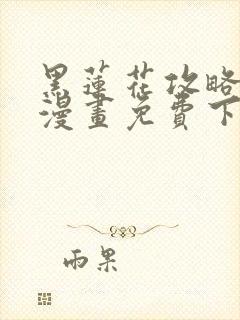 黑蓮花攻略
漫畫免費下
雨果